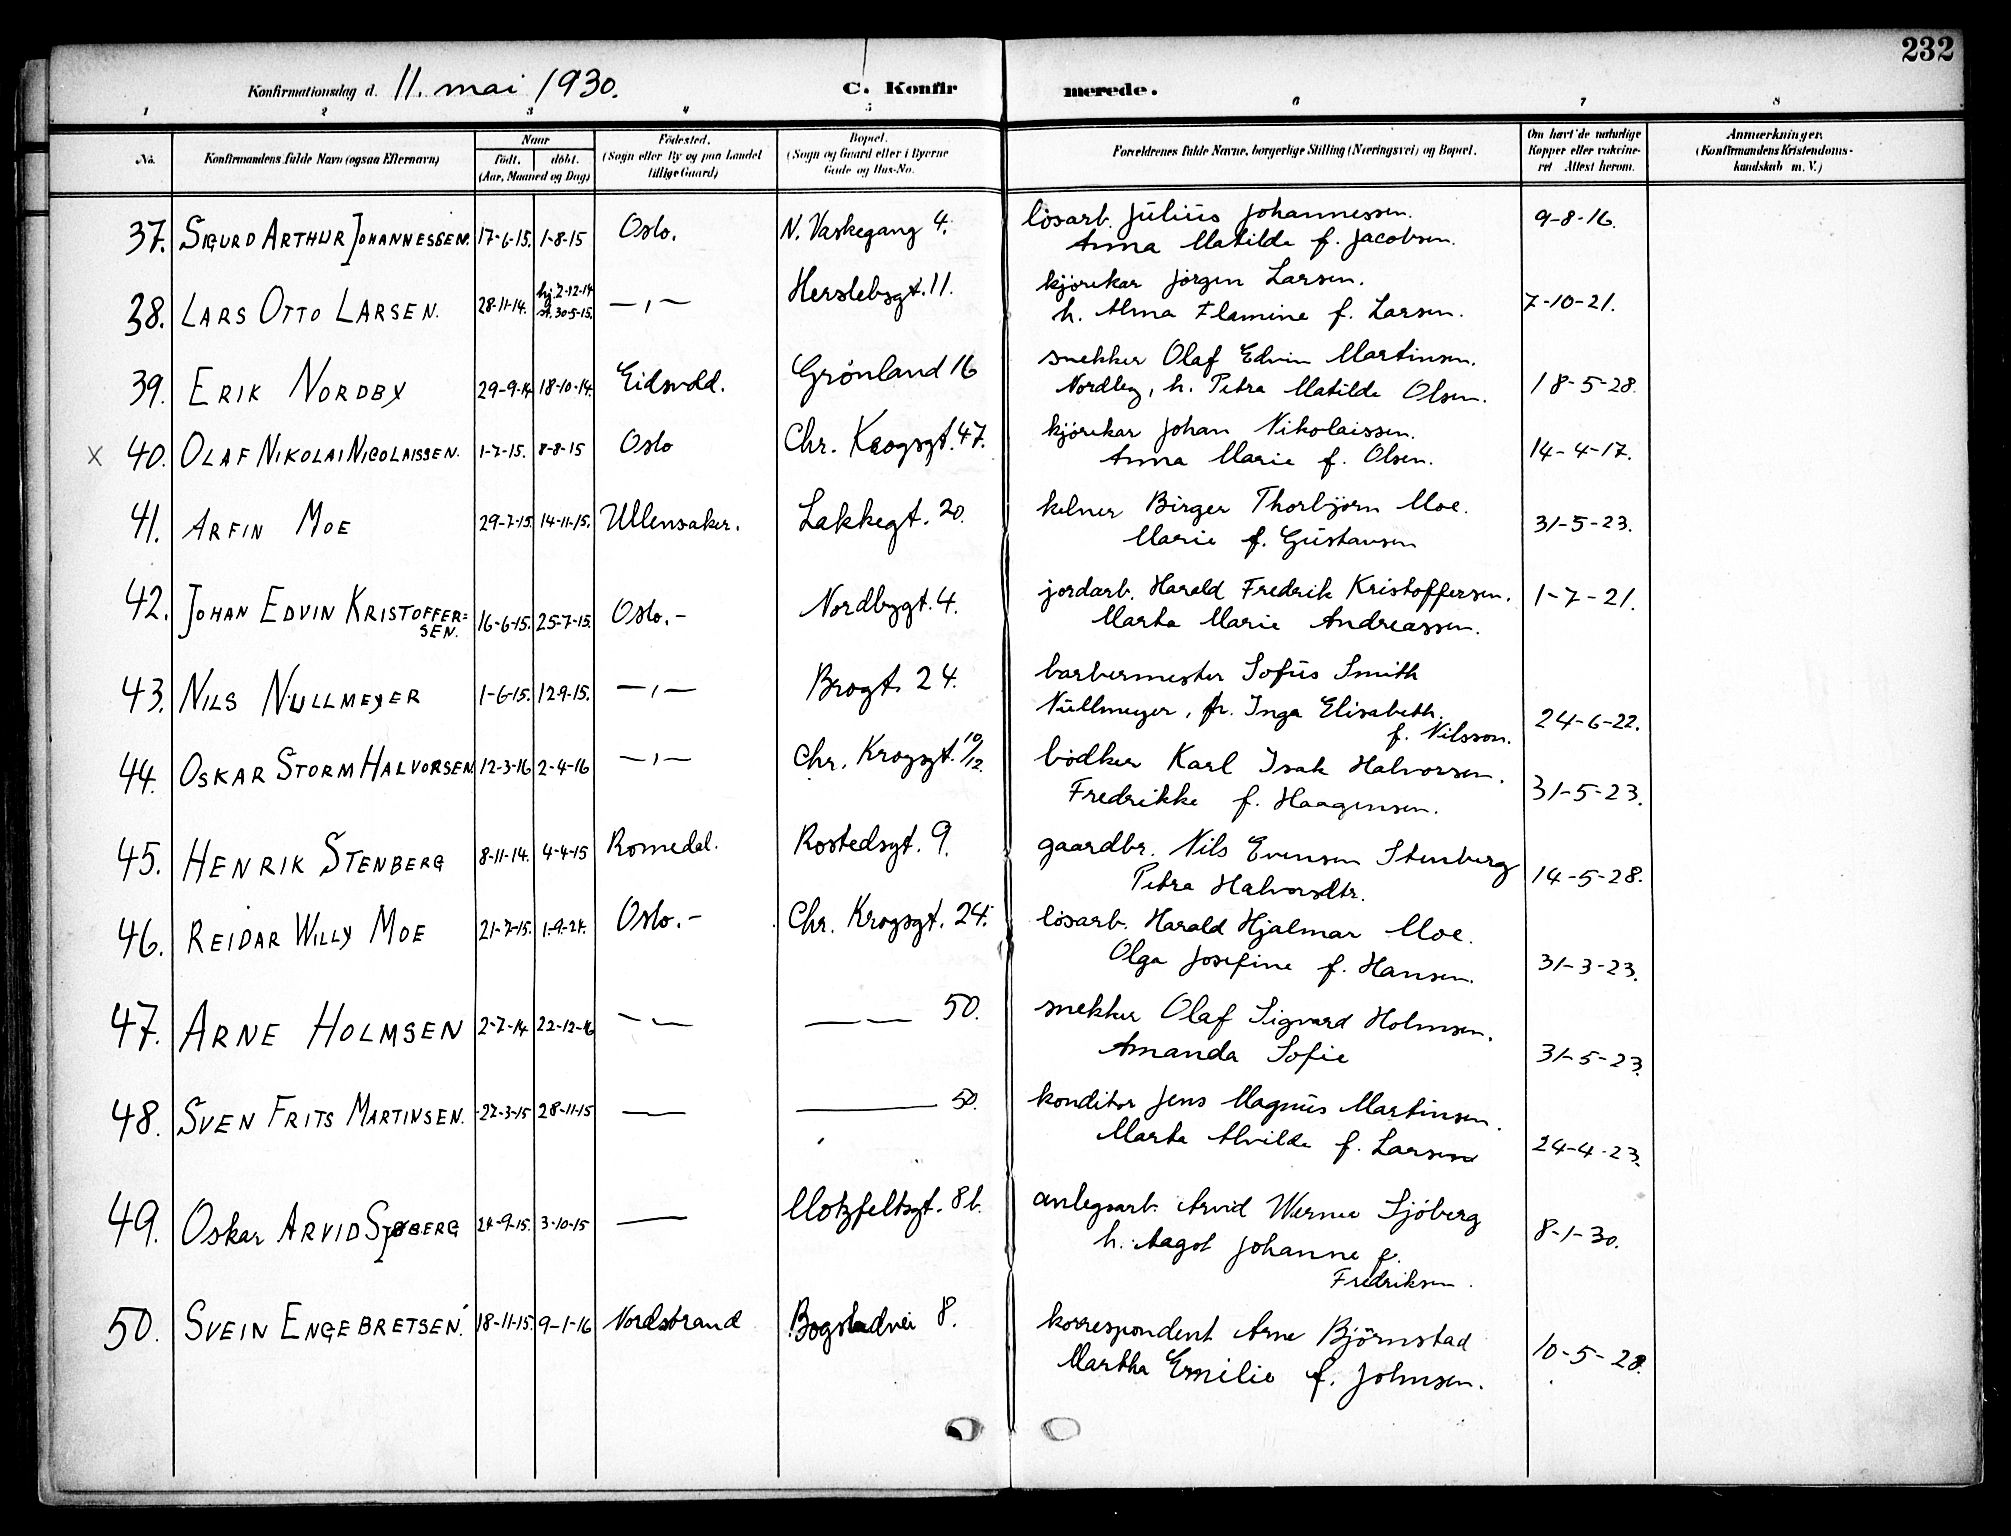 232
Konfirmationsdag d. 11. mai 1930.
C. Konfirmerede.
1 2 3 4 5 6 7 8
No. Konfirmandens fulde Navn (ogsaa Efternavn) Naar født. døbt. (Aar, Maaned og Dag) Fødested. (Sogn eller By og paa Landet tillige Gaard) Bopæl. (Sogn og Gaard eller i Byerne Gade og Hus-No. Forældrenes fulde Navne, borgerlige Stilling (Næringsvei) og Bopæl. Om havt de naturlige Kopper eller vakcineret Attest herom. Anmærkninger. (Konfirmandens Kristendomskundskab m. V.)
37. SIGURD ARTHUR JOHANNESSEN. 17-6-15. 1-8-15 Oslo. N. Vaskegang 4. løsarb. Julius Johannessen. 9-8-16.
Anna Matilde f. Jacobsen.
38. LARS OTTO LARSEN. 28-11-14. hj. 2-12-14 st. 30-5-15. — , — Herslebsgt. 11. kjørekar Jørgen Larsen. 7-10-21.
h. Alma Flamine f. Larsen.
39. ERIK NORDBY 29-9-14 18-10-14. Eidsvold. Grønland 16 snekker Olaf Edvin Martinsen. 18-5-28.
Nordby, h. Petra Matilde Olsen.
X 40. OLAF NIKOLAI NICOLAISSEN. 1-7-15. 8-8-15 Oslo Chr. Krogsgt. 47. kjørekar Johan Nikolaissen. 14-4-17.
Anna Marie f. Olsen.
41. ARFIN MOE 29-7-15 14-11-15. Ullensaker. Lakkegt. 20. kelner Birger Thorbjørn Moe. 31-5-23.
Marie f. Gustavsen
42. JOHAN EDVIN KRISTOFFER=
SEN. 16-6-15. 25-7-15. Oslo.- Nordbygt. 4. jordarb. Harald Fredrik Kristoffersen. 1-7-21.
Marta Marie Andreassen.
43. NILS NULLMEYER 1-6-15. 12-9-15. — , — Brogt. 24. barbermester Sofus Smith
Nullmeyer, fr. Inga Elisabeth 24-6-22.
f. Nilsson.
44. OSKAR STORM HALVORSEN 12-3-16 2-4-16 — , — Chr. Krogsgt. 10/12. bødker Karl Isak Halvorsen. 31-5-23.
Fredrikke f. Haagensen.
45. HENRIK STENBERG 8-11-14. 4-4-15 Romedal. Rostedsgt. 9. gaardbr. Nils Evensen Stenberg 14-5-28.
Petra Halvorsdtr.
46. REIDAR WILLY MOE 21-7-15. 1-9-24. Oslo.- Chr. Krogsgt. 24. løsarb. Harald Hjalmar Moe. 31-3-23.
Olga Josefine f. Hansen.
47. ARNE HOLMSEN 2-7-14 22-12-16 — — — — 50. snekker Olaf Sigvard Holmsen. 31-5-23.
Amanda Sofie
48. SVEN FRITS MARTINSEN. 27-3-15 28-11-15 — — 50. konditor Jens Magnus Martinsen. 24-4-23.
Marta Alvilde f. Larsen
49. Oskar ARVID SJØBERG 24-9-15. 3-10-15 — Motzfeltsgt. 8 b. anlegsarb. Arvid Werner Sjøberg 8-1-30.
h. Aagot Johanne f.
Fredriksen.
50. SVEIN ENGEBRETSEN. 18-11-15. 9-1-16 Nordstrand Bogstadvei 8. korrespondent Arne Bjørnstad 10-5-28.
Martha Emilie f. Johnsen.